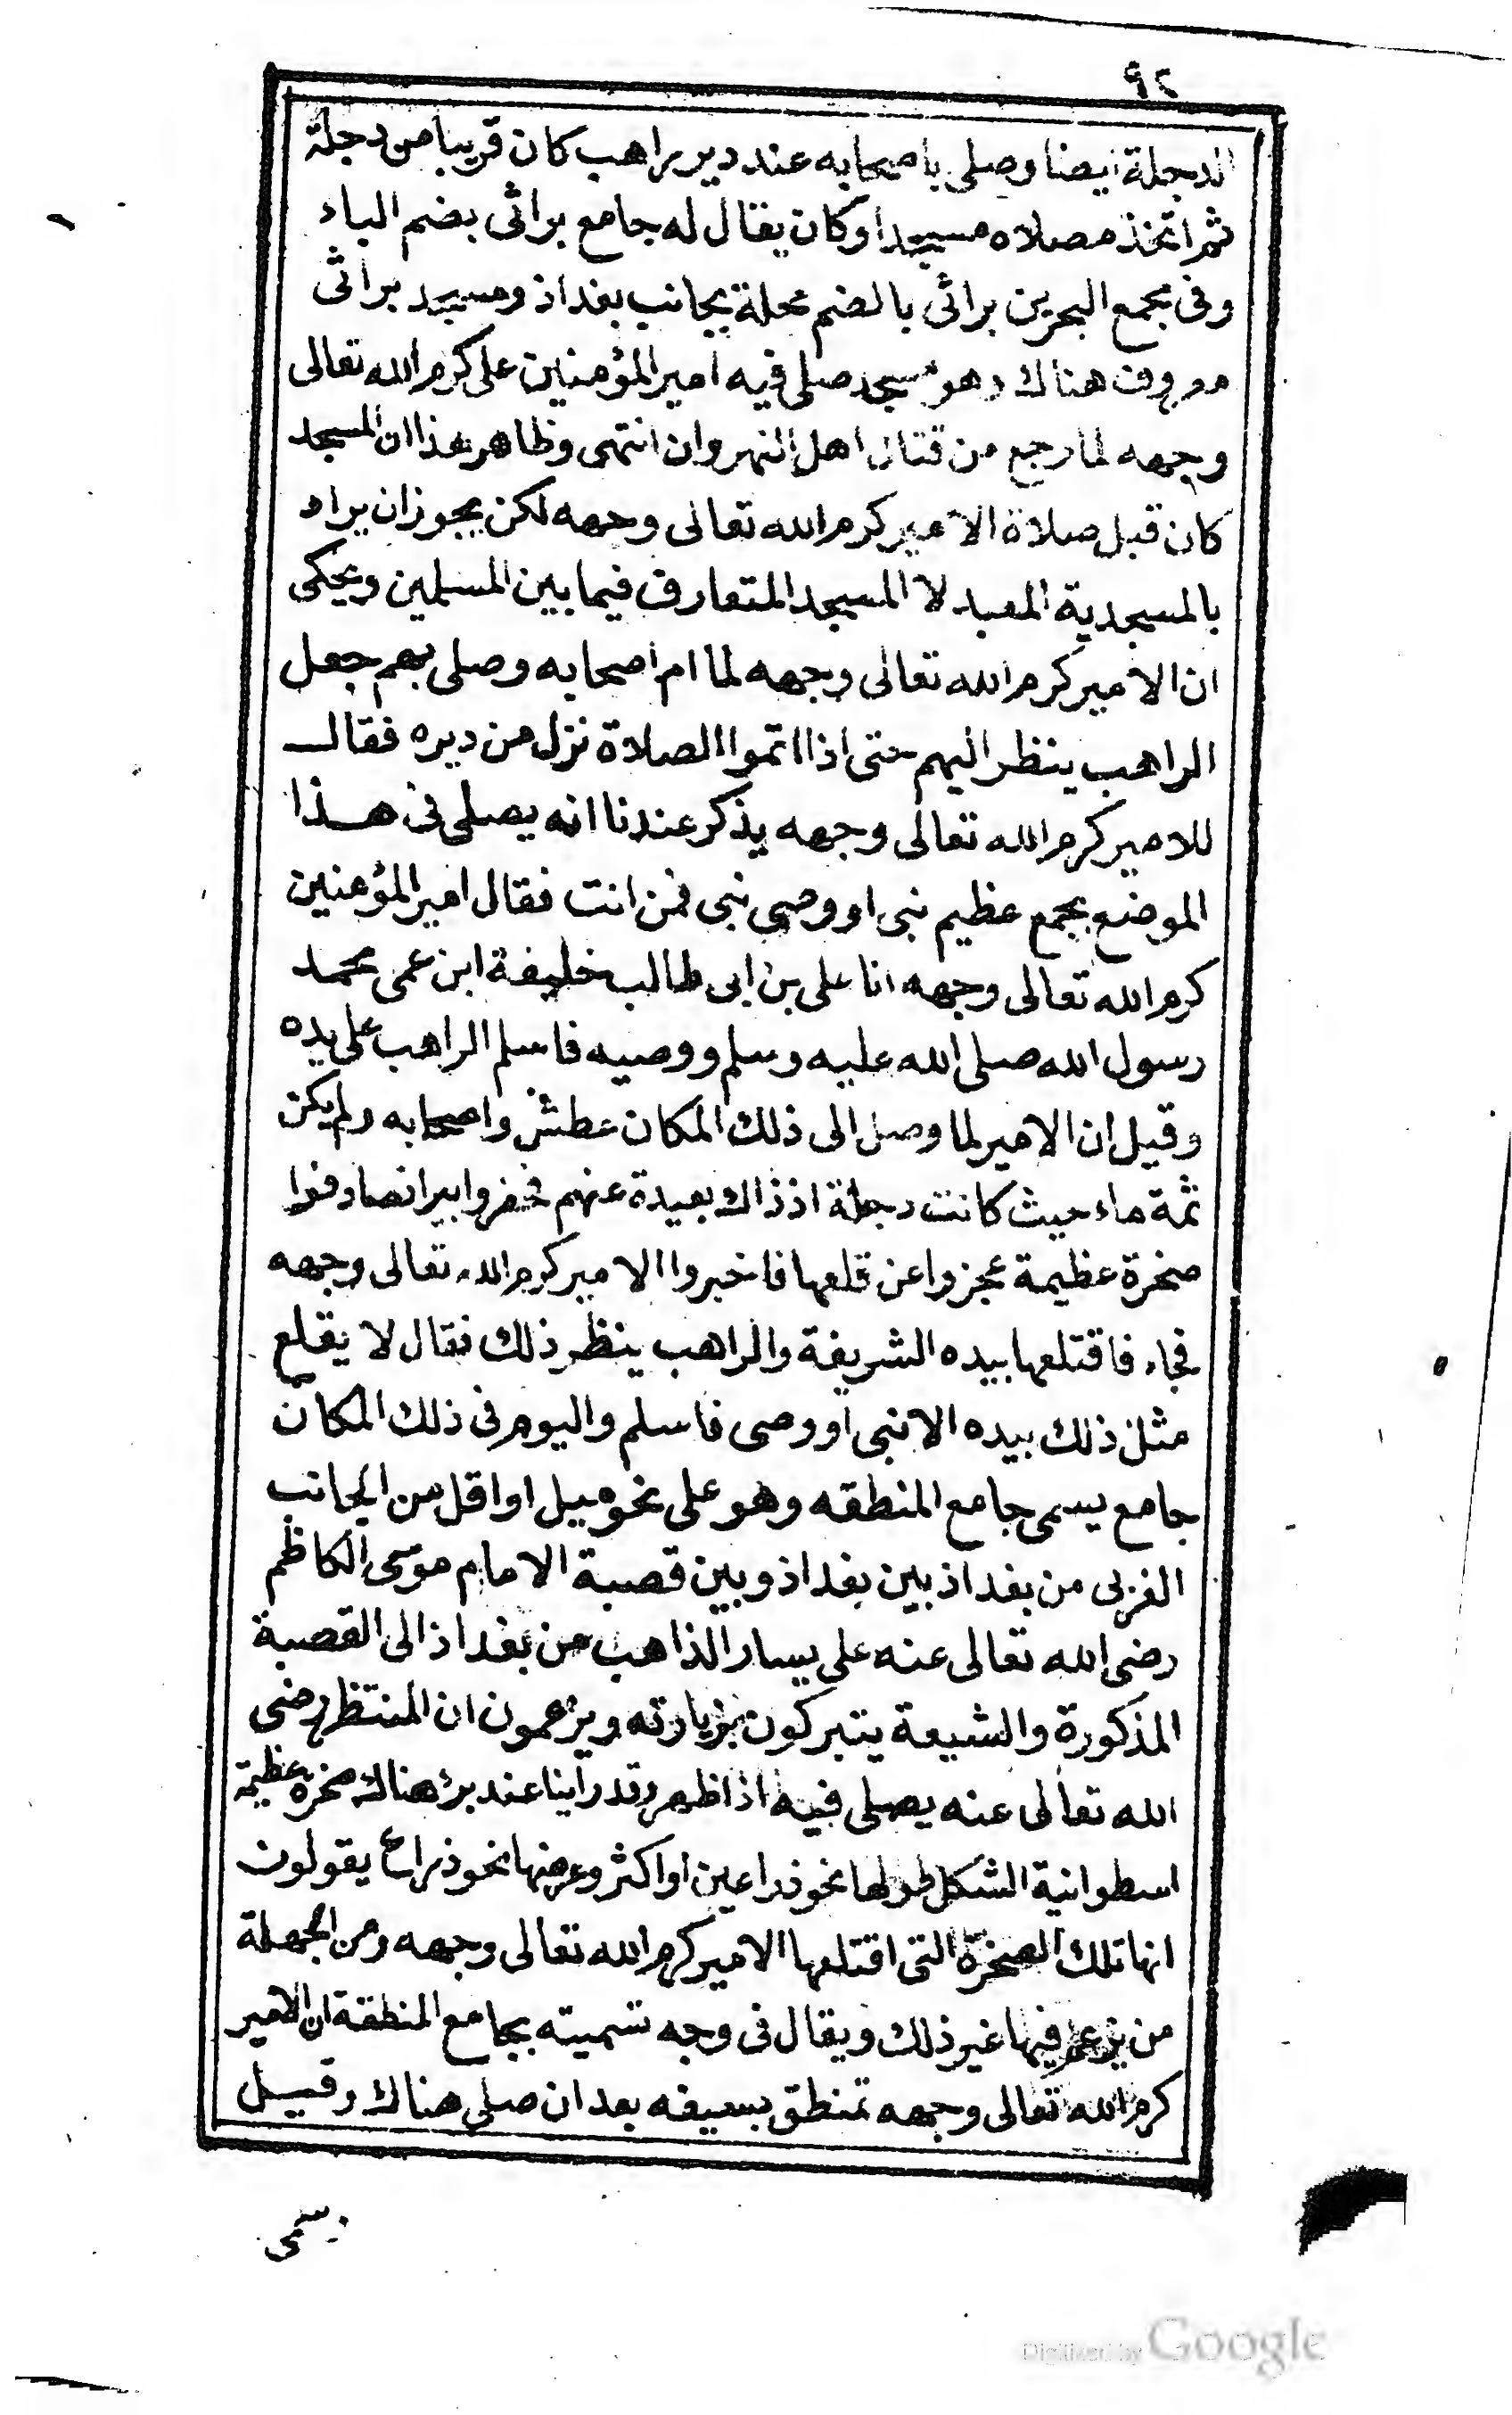 ٩٢
الدجلة ايضا وصلى باصحابه عند دير براهب كان قريبا من دجلة
ثم اتخذ مصلاه مسجدا وكان يقال له جامع براثى بضم الباء
وفى مجمع البحرين براثى بالضم محلة بجانب بغداذ ومسجد براثى
معروف هناك وهو مسجد صلى فيه امير المؤمنين على كرم الله تعالى
وجهه لما رجع من قتال اهل النهروان انتهى وظاهر هذا ان المسجد
كان قبل صلاة الامير كرم الله تعالى وجهه لكن يجوز ان يراد
بالمسجدية المعبد لا المسجد المتعارف فيما بين المسلمين ويحكى
ان الامير كرم الله تعالى وجهه لما ام اصحابه وصلى بهم جعل
الراهب ينظر اليهم حتى اذا اتموا الصلاة نزل من ديره فقال
للامير كرم الله تعالى وجهه يذكر عندنا انه يصلى فى هذا
الموضع بجمع عظيم نبى او وصى نبى فمن انت فقال امير المؤمنين
كرم الله تعالى وجهه انا على بن ابى طالب خليفة ابن عمى محمد
رسول الله صلى الله عليه وسلم ووصيه فاسلم الراهب على يده
وقيل ان الامير لما وصل الى ذلك المكان عطش واصحابه ولم يكن
ثمة ماء حيث كانت دجلة اذ ذاك بعيدة عنهم فحفروا بيرا فصادفوا
صخرة عظيمة عجزوا عن قلعها فاخبروا الامير كرم الله تعالى وجهه
فجاء فاقتلعها بيده الشريفة والراهب ينظر ذلك فقال لا يقلع
مثل ذلك بيده الا نبى او وصى فاسلم واليوم فى ذلك المكان
جامع يسمى جامع المنطقه وهو على نحو ميل او اقل من الجانب
الغربى من بغداذ بين بغداذ وبين قصبة الامام موسى الكاظم
رضى الله تعالى عنه على يسار الذاهب من بغداذ الى القصبة
المذكورة والشيعة يتبركون بزيارته ويزعمون ان المنتظر رضى
الله تعالى عنه يصلى فيه اذا ظهر وقد راينا عند بئر هناك صخرة عظيمة
اسطوانية الشكل طولها نحو ذراعين او اكثر وعرضها نحو ذراع يقولون
انها تلك الصخرة التى اقتلعها الامير كرم الله تعالى وجهه ومن الجهلة
من يزعم فيها غير ذلك ويقال فى وجه تسميته بجامع المنطقة ان الامير
كرم الله تعالى وجهه تمنطق بسيفه بعد ان صلى هناك وقيل
سمى
Digitized by Google